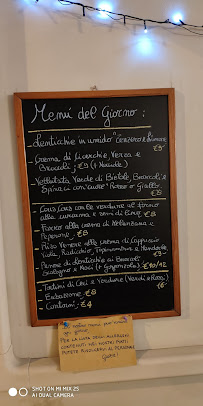 Menù del Giorno:
- Lenticchie in umido "Zenzero e Limone"
€5
- Crema di Zucchine Verza e
Broccoli; €5 (+ Mandorle)
- Vellutata Verde di Bietole, Broccoli e
Spinaci con "cuore" Rosso e Giallo.
€5
- Cous Cous con le verdure al forno
alla curcuma e semi di lino €8
- Farro alla crema di Melanzana e
Peperone. €8
- Riso Venere alla crema di Cappuccio
Viola, Radicchio, Topinambur e Mandorle
€8
- Penne di Lenticchie ai Broccoli
€10/12
- Tortini di Ceci e Verdure (Verdi o Rossi)
€6
- Entrambe €8
- Contorni; €4
PER LA LISTA DEGLI ALLERGENI
CONTENUTI NEI NOSTRI PIATTI
POTETE RIVOLGERVI AL PERSONALE
Grazie!
SHOT ON MI MIX 2S
AI DUAL CAMERA